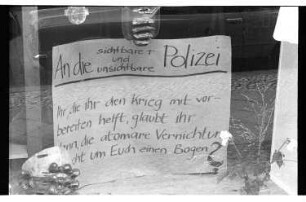 An die sichtbare r und unsichtbare Polizei
Ihr, die ihr den Krieg mit vor-
bereiten helft, glaubt ihr
denn, die atomare Vernichtun
cht um Euch einen Bogen?